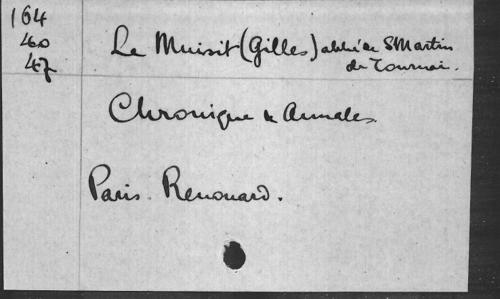 164
40
47
Le Muisit (Gilles) abbé de St Martin
de Tournai.
Chronique & Annales
Paris. Renouard.